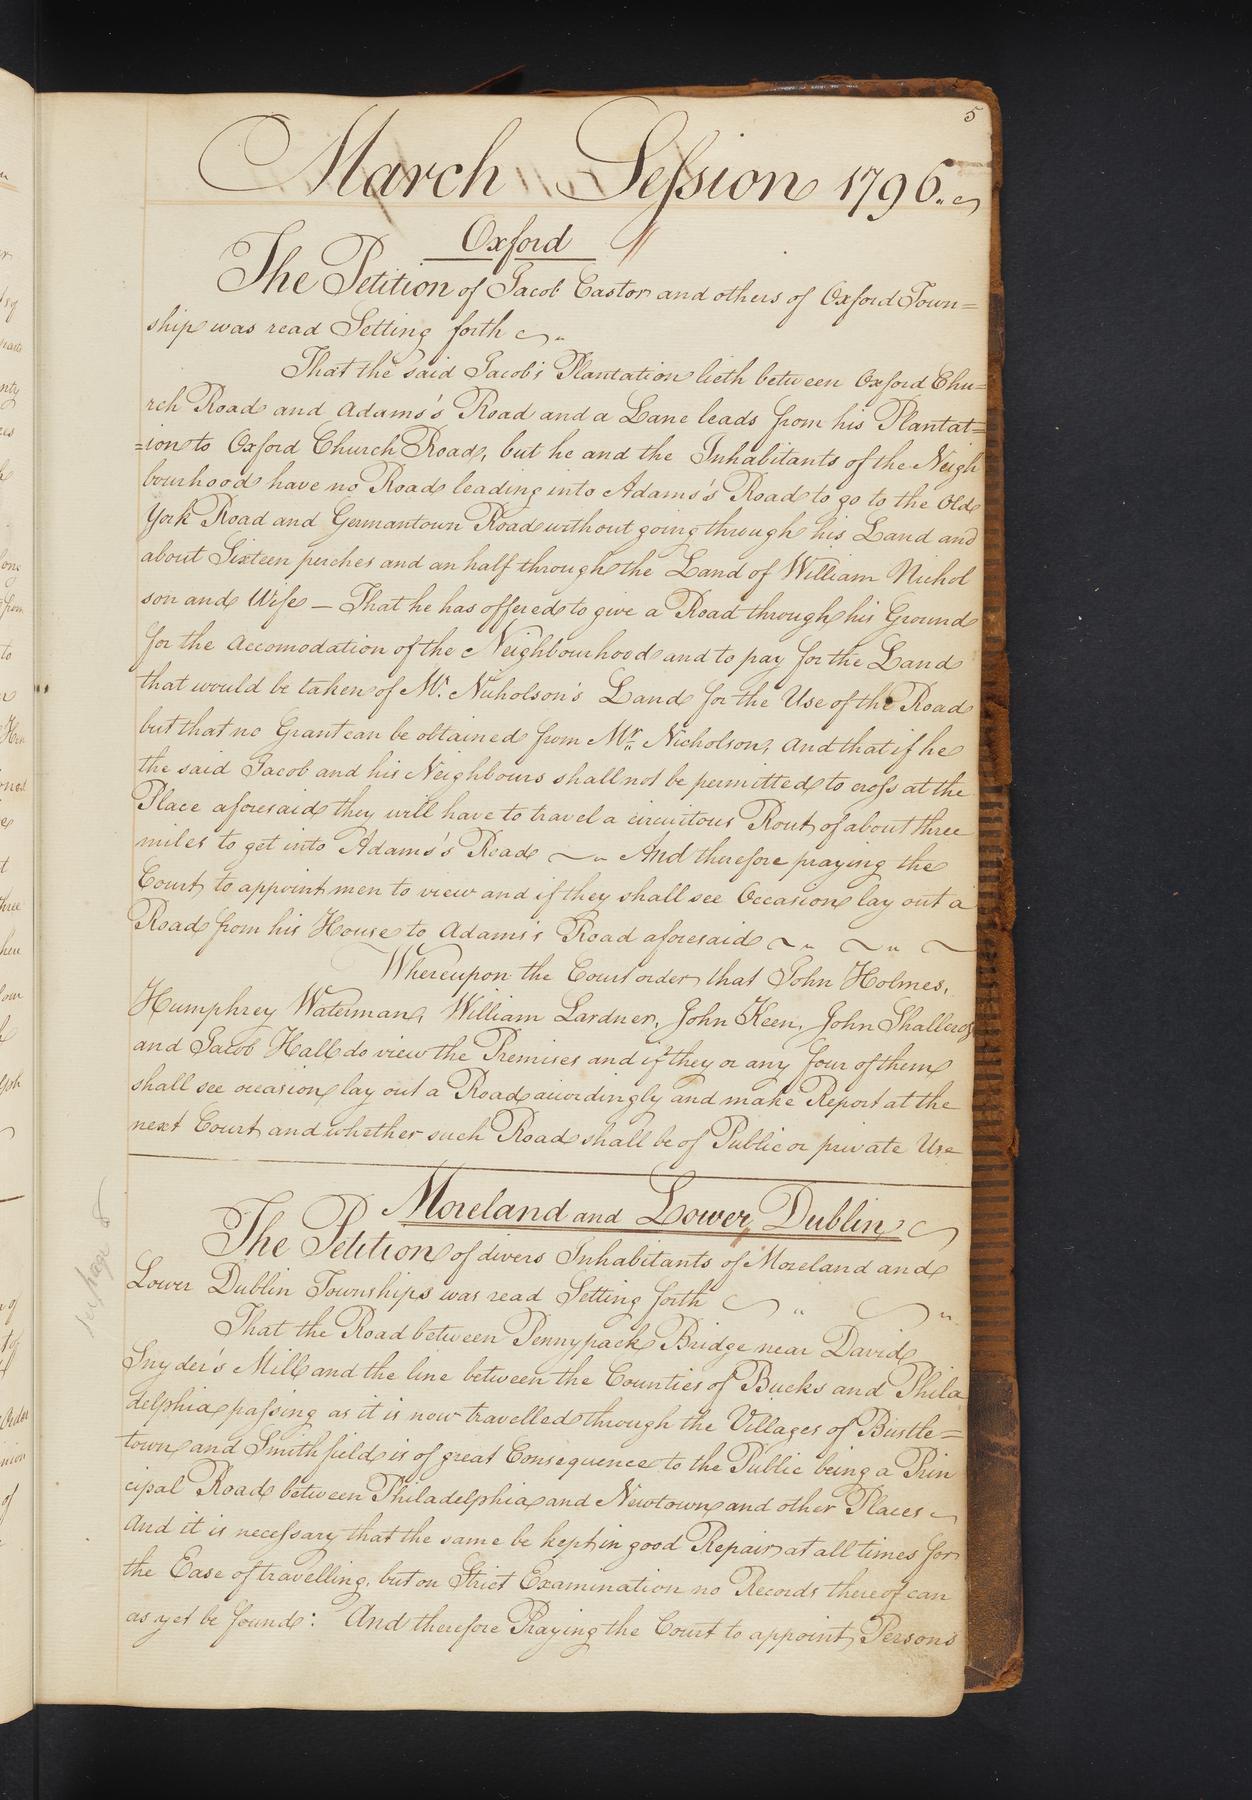 5
March Session 1796.
Oxford
The Petition of Jacob Castor and others of Oxford Town=
ship was read Setting forth
That the said Jacob's Plantation lieth between Oxford Chu=
rch Road and Adams's Road and a Lane leads from his Plantat=
=ion to Oxford Church Road, but he and the Inhabitants of the Neigh
bourhood have no Road leading into Adams's Road to go to the Old
York Road and Germantown Road without going through his Land and
about Sixteen perches and an half through the Land of William Nichol
son and Wife — That he has offered to give a Road through his Ground
for the Accomodation of the Neighbourhood and to pay for the Land
that would be taken of Mr. Nicholson's Land for the Use of the Road
but that no Grant can be obtained from Mr. Nicholson, And that if he
the said Jacob and his Neighbours shall not be permitted to cross at the
Place aforesaid they will have to travel a circuitous Rout of about three
miles to get into Adams's Road ~ And therefore praying the
Court to appoint men to view and if they shall see Occasion lay out a
Road from his House to Adams's Road aforesaid ~ ~ ~
Whereupon the Court order that John Holmes,
Humphrey Waterman, William Lardner, John Keen, John Shallcross
and Jacob Hall do view the Premises and if they or any four of them
shall see occasion lay out a Road accordingly and make Report at the
next Court and whether such Road shall be of Public or private Use
Moreland and Lower Dublin
The Petition of divers Inhabitants of Moreland and
Lower Dublin Townships was read Setting forth
That the Road between Pennypack Bridge near David
Snyder's Mill and the line between the Counties of Bucks and Phila
delphia passing as it is now travelled through the Villages of Bustle=
town and Smithfield is of great Consequence to the Public being a Prin
cipal Road between Philadelphia and Newtown and other Places
And it is necessary that the same be kept in good Repair at all times for
the Ease of travelling, but on Strict Examination no Records thereof can
as yet be found: And therefore Praying the Court to appoint Persons